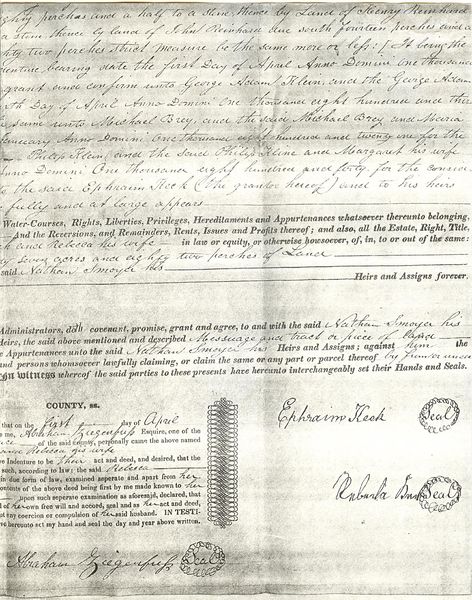 perches and a half to a stone thence by Land of Henry Reinhard
a stone thence by land of John Reinhard due south fourteen perches and a
two perches Strict measure be the same more or less: [It being the
bearing date the first Day of April Anno Domini One thousand
grant and confirm unto George Adam Klein and the George Adam
Day of April Anno Domini One thousand eight hundred and the
same unto Michael Brey, and the said Michael Brey and Maria
Anno Domini One thousand eight hundred and twenty one for the
Philip Klein and the said Philip Kline and Margaret his wife
Anno Domini One thousand eight hundred and forty for the consid
to the said Ephraim Keck (the grantor hereof) and to his heirs
fully and at large appears
Water-Courses, Rights, Liberties, Privileges, Hereditaments and Appurtenances whatsoever thereunto belonging,
And the Reversions, and Remainders, Rents, Issues and Profits thereof; and also, all the Estate, Right, Title,
and Rebecca his wife in law or equity, or otherwise howsoever, of, in, to or out of the same:
seven acres and eighty two perches of Land
said Nathan Smoyer his
Heirs and Assigns forever.
Administrators, doth covenant, promise, grant and agree, to and with the said Nathan Smoyer his
Heirs, the said above mentioned and described Messuage and tract or piece of Land
Appurtenances unto the said Nathan Smoyer his Heirs and Assigns; against him the
and persons whomsoever lawfully claiming, or claim the same or any part or parcel thereof by from or under
witness whereof the said parties to these presents have hereunto interchangeably set their Hands and Seals.
COUNTY, ss.
that on the first day of April
me, Abraham Ziegenfuss Esquire, one of the
of the said county, personally came the above named
Rebecca his wife
Indenture to be their act and deed, and desired, that the
such, according to law; the said Rebecca
in due form of law, examined seperate and apart from her
contents of the above deed being first by me made known to her
upon such seperate examination as aforesaid, declared, that
of her own free will and accord, seal and as her act and deed,
any coercion or compulsion of her said husband. IN TESTI-
have hereunto set my hand and seal the day and year above written.
Ephraim Keck
Seal
Seal
Abraham Ziegenfuss
Seal